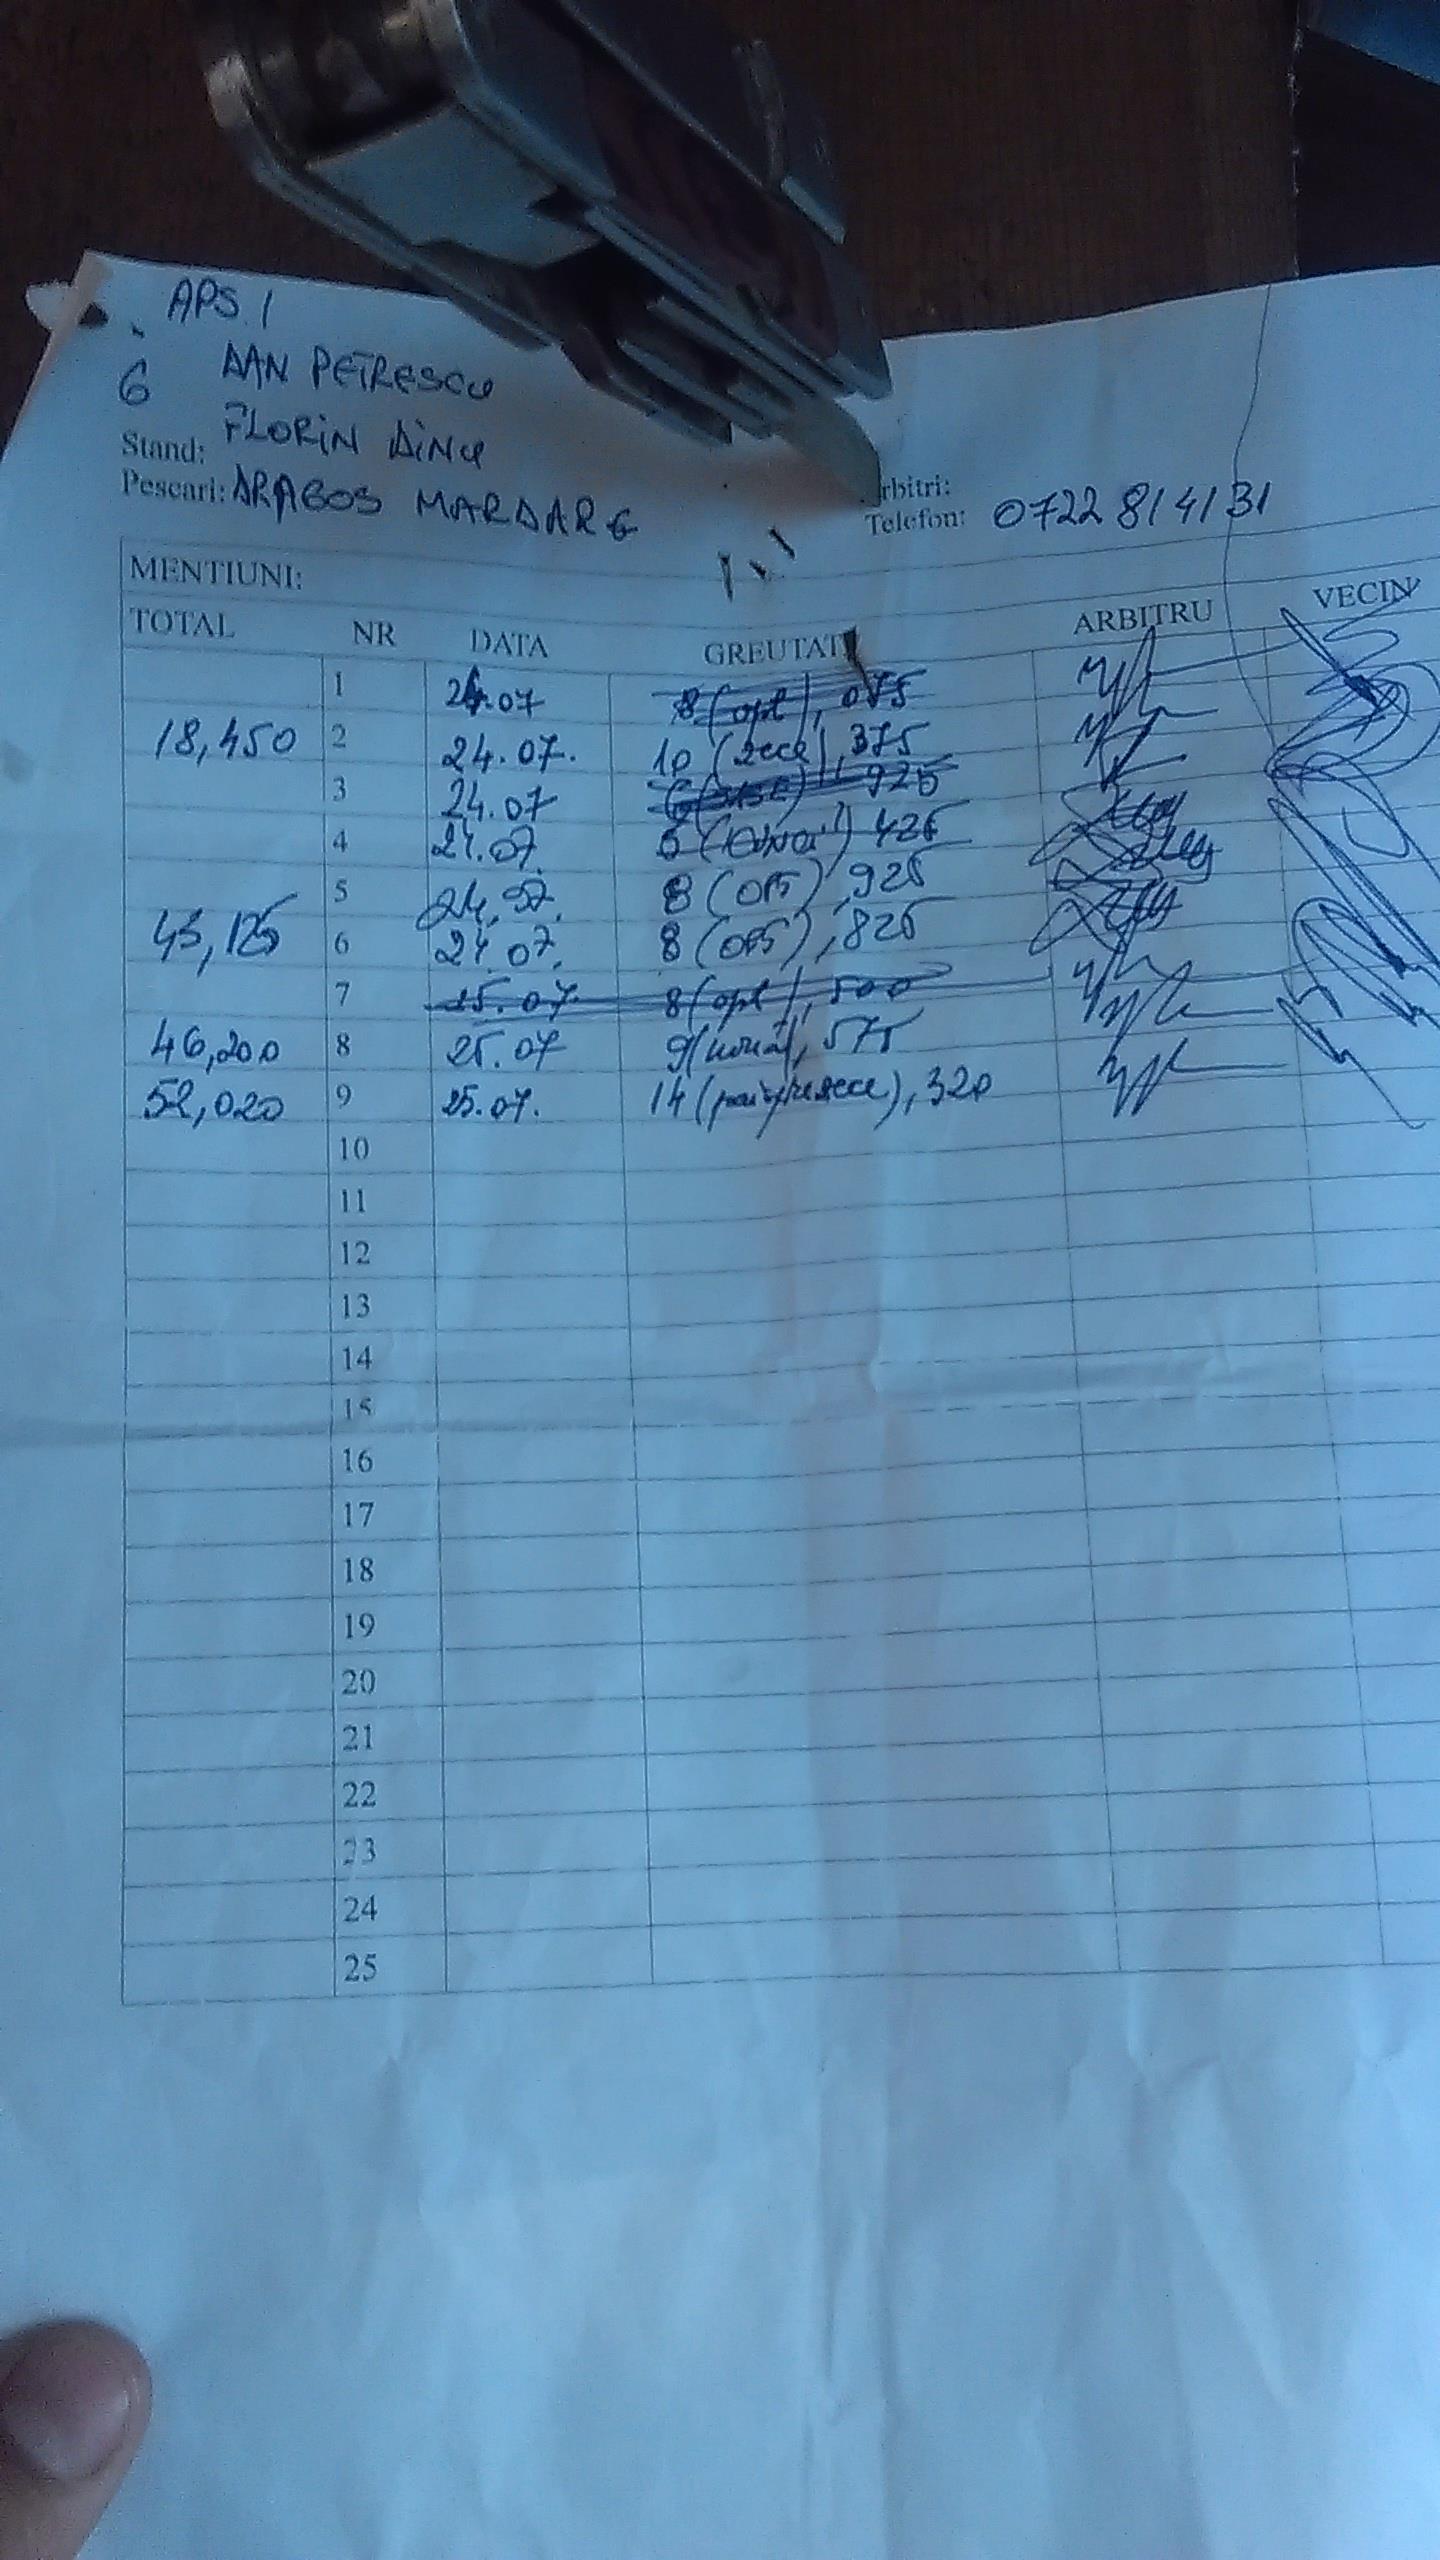 APS. 1
6 DAN PETRESCU
FLORIN DINU
Stand:
Pescari: DRAGOS MARDARE
rbitri:
Telefon: 0722 814131
MENTIUNI:
TOTAL NR DATA GREUTATI ARBITRU VECIN
1 24.07 8 (opt), 075
18,450 2 24.07. 10 (zece), 375
3 24.07 6 (sase), 925
4 24.07. 426
5 24.07. 8 (OPT), 925
45,125 6 24.07. 8 (OPT), 825
7 25.07. 8 (opt), 500
46,200 8 25.07 9 (nouă), 575
52,020 9 25.07. 14 (paisprezece), 320
10
11
12
13
14
15
16
17
18
19
20
21
22
23
24
25